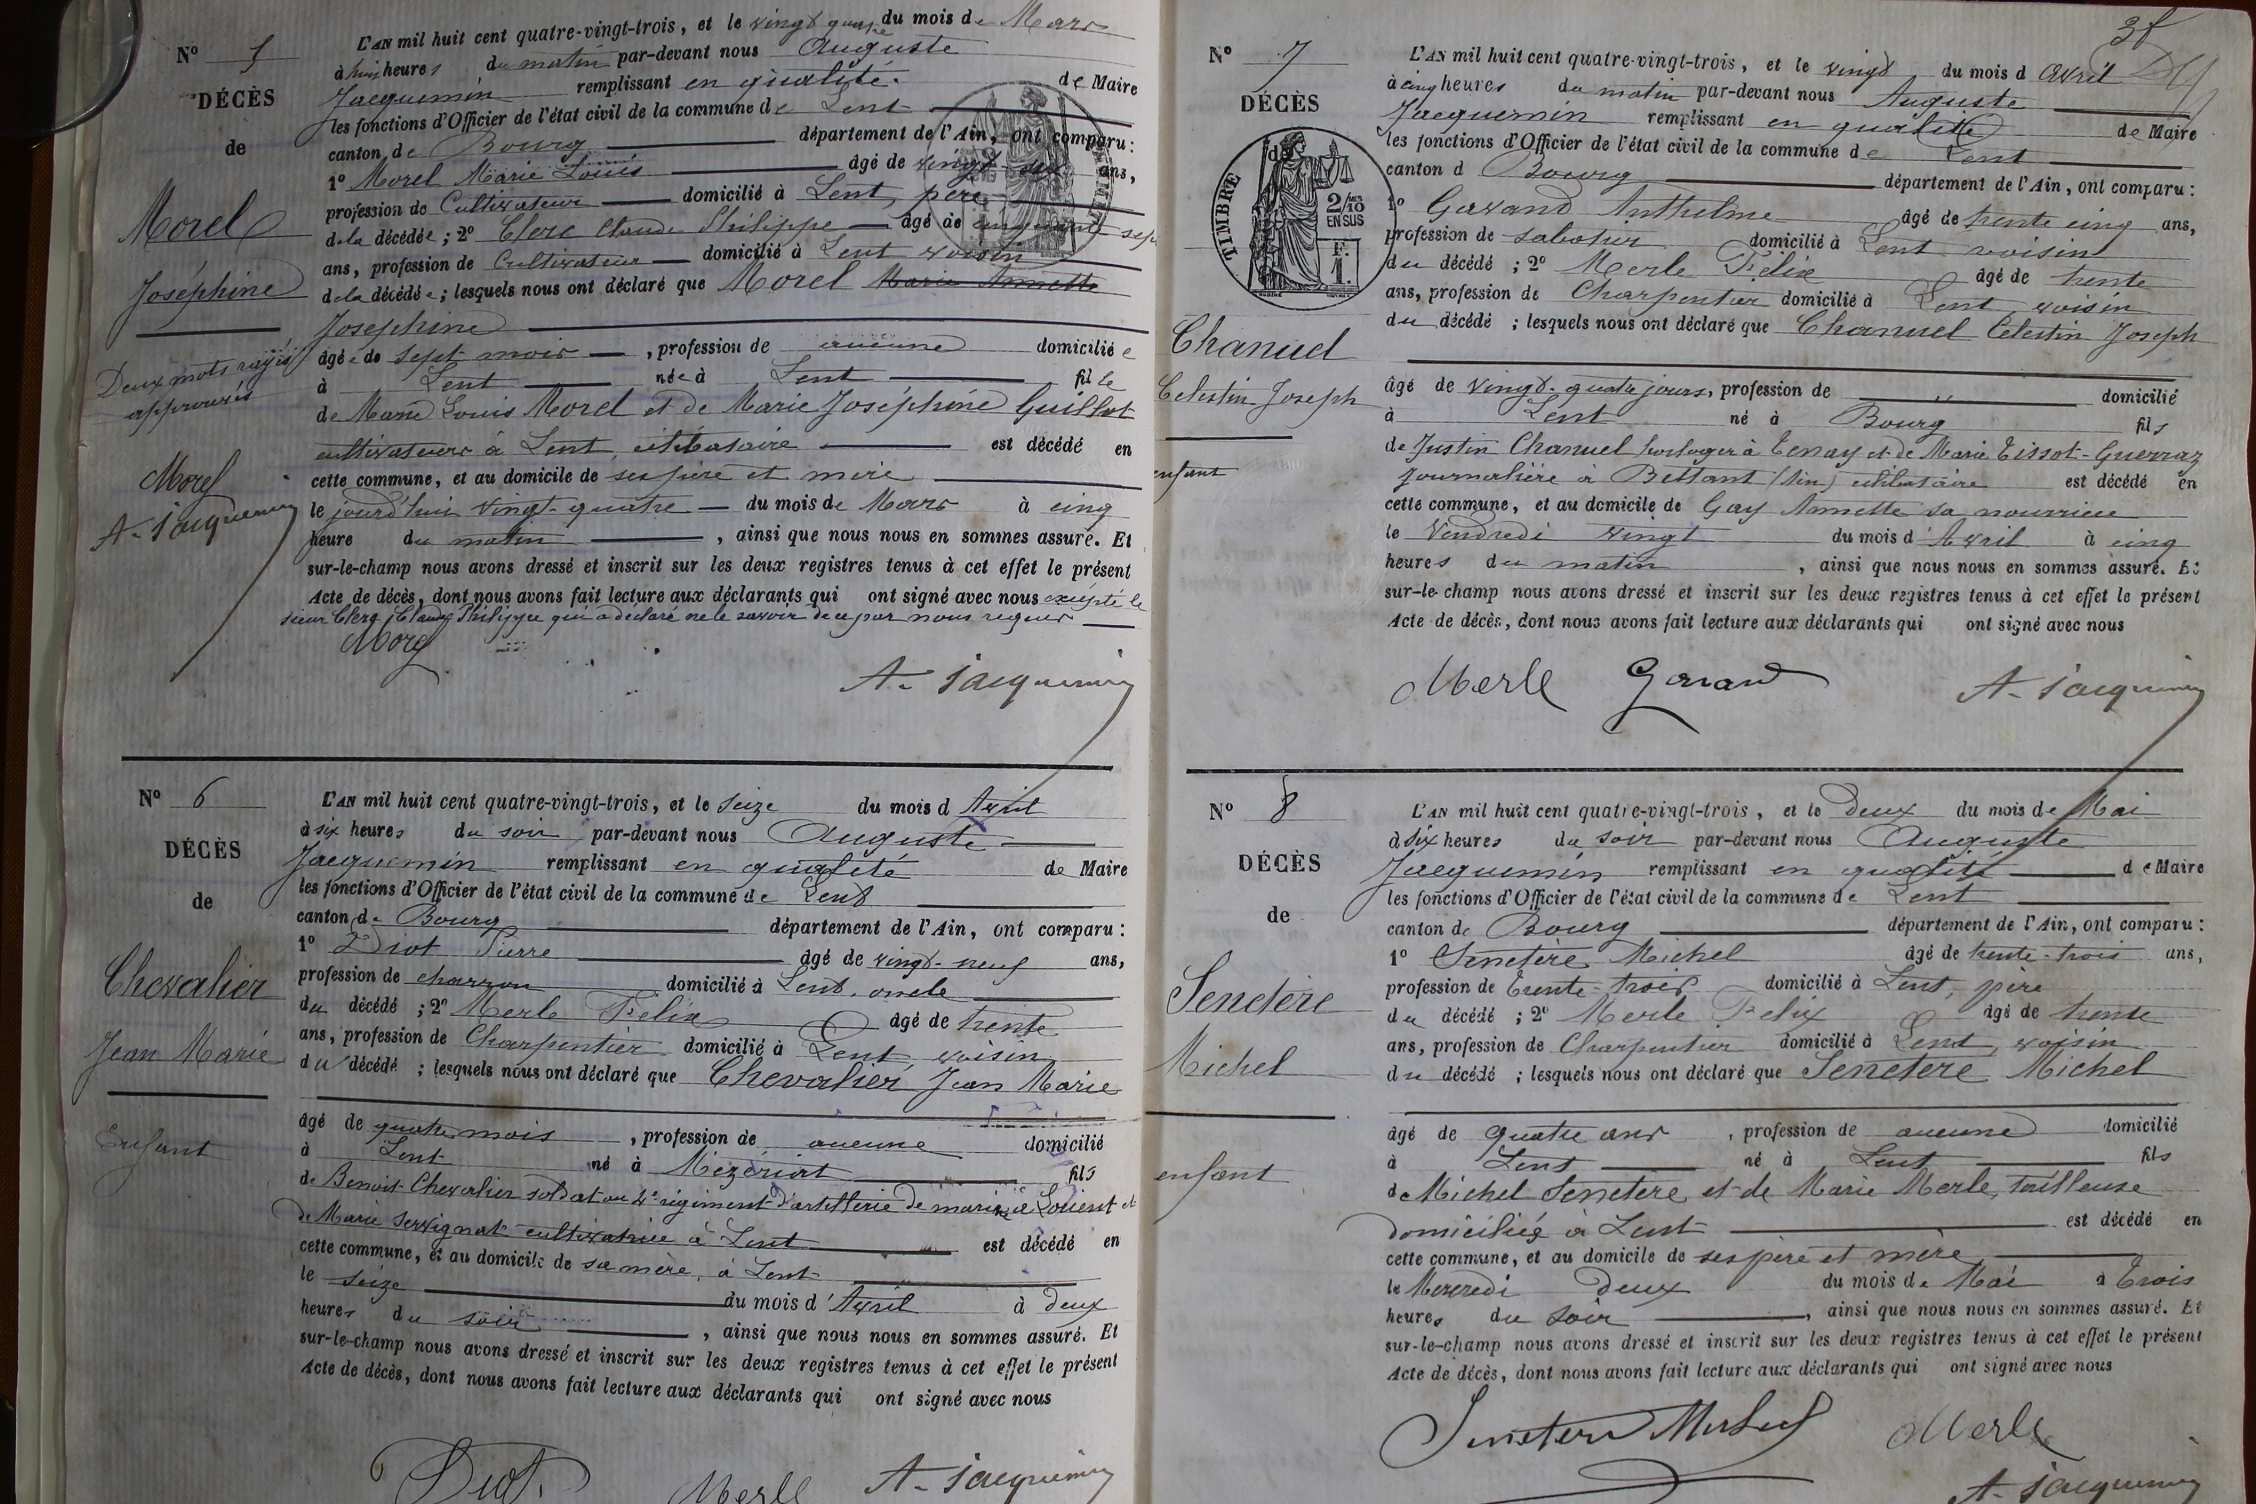 N° 5
DÉCÈS
de
Morel
Joséphine
Deux mots rayés
approuvés
Morel
A. Jacquemin
L'AN mil huit cent quatre-vingt-trois, et le vingt quatre du mois de Mars
à huit heures du matin par-devant nous Auguste
Jacquemin remplissant en qualité de Maire
les fonctions d'Officier de l'état civil de la commune de Lent
canton de Bourg département de l'Ain, ont comparu :
1° Morel Marie Louis âgé de vingt-six ans,
profession de Cultivateur domicilié à Lent, père
de la décédée ; 2° Clerc Claude Philippe âgé de cinquante sept
ans, profession de Cultivateur domicilié à Lent voisin
de la décédée ; lesquels nous ont déclaré que Morel Marie Annette
Joséphine
âgée de sept mois, profession de aucune domiciliée
à Lent née à Lent fille
de Marie Louis Morel et de Marie Joséphine Guillot
cultivateurs à Lent, célibataire est décédé en
cette commune, et au domicile de ses père et mère
le jourd'hui vingt-quatre du mois de Mars à cinq
heure du matin, ainsi que nous nous en sommes assuré. Et
sur-le-champ nous avons dressé et inscrit sur les deux registres tenus à cet effet le présent
Acte de décès, dont nous avons fait lecture aux déclarants qui ont signé avec nous excepté le
sieur Clerc Claude Philippe qui a déclaré ne le savoir de ce par nous requis
Morel
A. Jacquemin
N° 6
DÉCÈS
de
Chevalier
Jean Marie
Enfant
L'AN mil huit cent quatre-vingt-trois, et le seize du mois d'Avril
à six heures du soir par-devant nous Auguste
Jacquemin remplissant en qualité de Maire
les fonctions d'Officier de l'état civil de la commune de Lent
canton de Bourg département de l'Ain, ont comparu :
1° Diot Pierre âgé de vingt-neuf ans,
profession de charron domicilié à Lent, oncle
du décédé ; 2° Merle Félix âgé de trente
ans, profession de Charpentier domicilié à Lent voisin
du décédé ; lesquels nous ont déclaré que Chevalier Jean Marie
âgé de quatre mois, profession de aucune domicilié
à Lent né à Mézériat fils
de Benoit Chevalier soldat au 4e régiment d'artillerie de marine à Lorient et
de Marie Servignat cultivatrice à Lent est décédé en
cette commune, et au domicile de sa mère, à Lent
le seize du mois d'Avril à deux
heures du soir, ainsi que nous nous en sommes assuré. Et
sur-le-champ nous avons dressé et inscrit sur les deux registres tenus à cet effet le présent
Acte de décès, dont nous avons fait lecture aux déclarants qui ont signé avec nous
Diot. Merle A. Jacquemin
N° 7
DÉCÈS
de
TIMBRE
2/10 EN SUS
F. 1.
Chanuel
Celestin Joseph
enfant
L'AN mil huit cent quatre-vingt-trois, et le vingt du mois d Avril
à cinq heures du matin par-devant nous Auguste
Jacquemin remplissant en qualité de Maire
les fonctions d'Officier de l'état civil de la commune de Lent
canton d Bourg département de l'Ain, ont comparu :
1° Gavand Anthelme âgé de trente cinq ans,
profession de sabotier domicilié à Lent voisin
du décédé ; 2° Merle Félix âgé de trente
ans, profession de Charpentier domicilié à Lent voisin
du décédé ; lesquels nous ont déclaré que Chanuel Celestin Joseph
âgé de vingt-quatre jours, profession de domicilié
à Lent né à Bourg fils
de Justin Chanuel horloger à Tenay et de Marie Tissot-Guerraz
journalière à Bettant (Ain) célibataire est décédé en
cette commune, et au domicile de Gay Annette sa nourrice
le Vendredi vingt du mois d'Avril à cinq
heures du matin, ainsi que nous nous en sommes assuré. Et
sur-le-champ nous avons dressé et inscrit sur les deux registres tenus à cet effet le présent
Acte de décès, dont nous avons fait lecture aux déclarants qui ont signé avec nous
Merle Gavand A. Jacquemin
N° 8
DÉCÈS
de
Senetère
Michel
enfant
L'AN mil huit cent quatre-vingt-trois, et le Deux du mois de Mai
à six heures du soir par-devant nous Auguste
Jacquemin remplissant en qualité de Maire
les fonctions d'Officier de l'état civil de la commune de Lent
canton de Bourg département de l'Ain, ont comparu :
1° Senetère Michel âgé de trente-trois ans,
profession de Trente-trois domicilié à Lent, père
du décédé ; 2° Merle Felix âgé de trente
ans, profession de Charpentier domicilié à Lent, voisin
du décédé ; lesquels nous ont déclaré que Senetère Michel
âgé de quatre ans, profession de aucune domicilié
à Lent né à Lent fils
de Michel Senetère et de Marie Merle, tailleuse
domiciliés à Lent est décédé en
cette commune, et au domicile de ses père et mère
le Mercredi deux du mois de Mai à Trois
heures du soir, ainsi que nous nous en sommes assuré. Et
sur-le-champ nous avons dressé et inscrit sur les deux registres tenus à cet effet le présent
Acte de décès, dont nous avons fait lecture aux déclarants qui ont signé avec nous
Senetère Michel Merle
A. Jacquemin